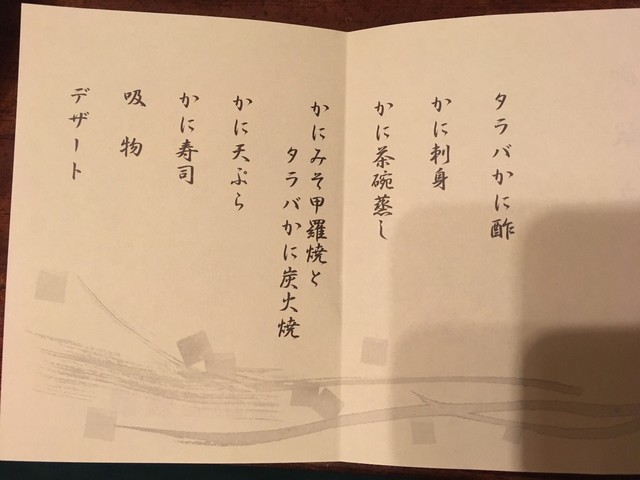 タラバかに酢
かに刺身
かに茶碗蒸し
かにみそ甲羅焼と
タラバかに炭火焼
かに天ぷら
かに寿司
吸物
デザート